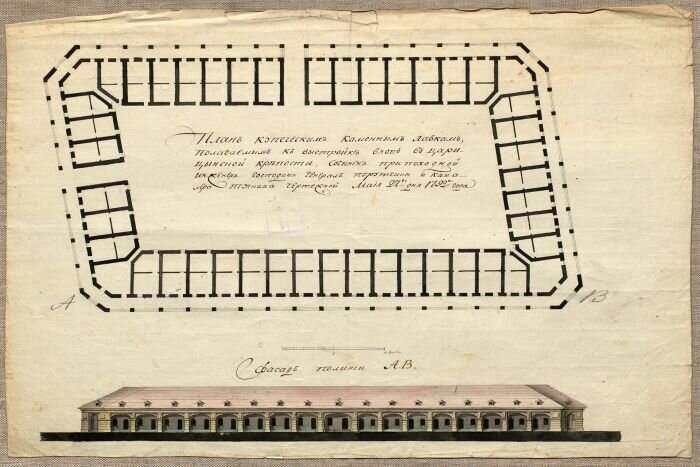 Планъ купеческимъ каменнымъ лавкамъ,
полагаемымъ къ выстройкѣ вновь въ Цари
цынской крѣпости, при походной
инженеръ господина генералъ порутчика и кава
лера чертежной Маія дня года
А
В
Фасадъ полинiи А.В.